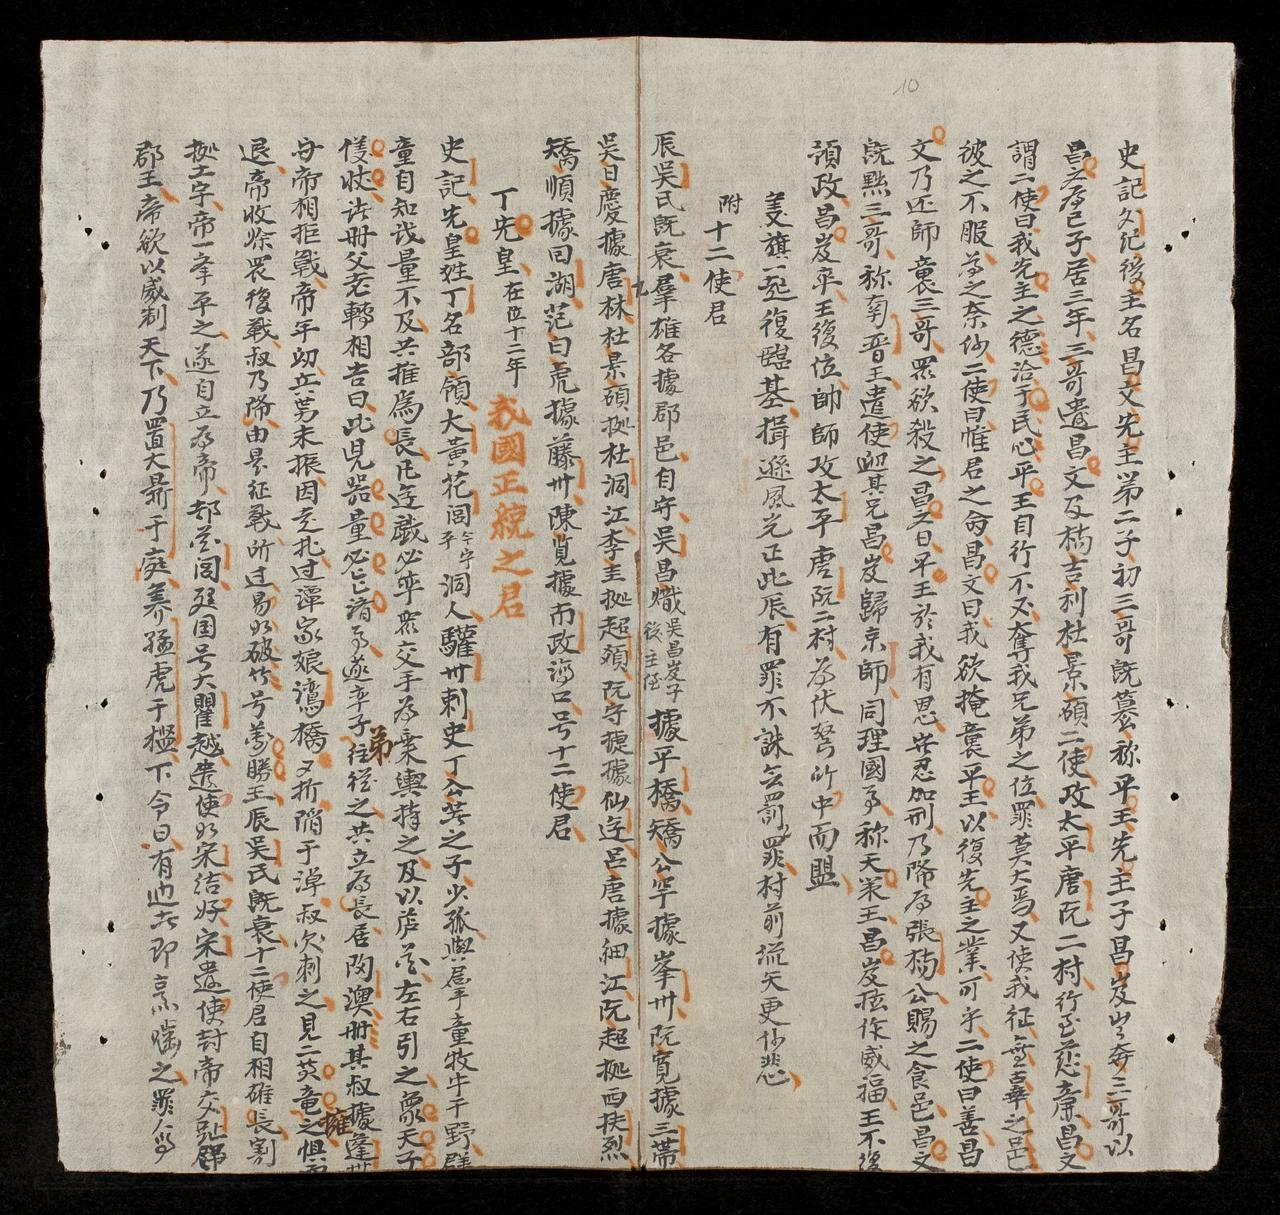 10
史記欠紀後主名昌文先主第二子初三哥既篡称平王先主子昌岌出奔三哥以
昌文為己子居三年三哥遣昌文及楊吉利杜景碩二使攻太平唐阮二村行至慈廉昌文
謂二使曰我先主之德洽于民心平王自行不义奪我兄弟之位罪莫大焉又使我征無辜之邑
彼之不服為之奈何二使曰惟君之命昌文曰我欲掩襲平王以復先主之業可乎二使曰善昌
文乃还師襲三哥眾欲殺之昌文曰平王於我有恩安忍加刑乃降為張楊公賜之食邑昌文
既黜三哥称南晋王遣使迎其兄昌岌歸京師同理國事称天策王昌岌擅作威福王不復
預政昌岌卒王復位帥師攻太平唐阮二村為伏弩所中而崩
羑旗一起復臨基揖遜風光正此辰有罪不誅
村前流矢更何悲
附十二使君
辰吳氏既衰羣雄各據郡邑自守吳昌熾吳昌岌子後主侄據平橋矯公罕據峯州阮寬據三帶
吳日慶據唐林杜景碩據杜洞江李圭據超類阮守捷據仙遊呂唐據細江阮超據西扶烈
矯順據回湖范白虎據藤州陳覧據布政海口号十二使君
九
丁先皇在位十二年 我國正統之君
史記先皇姓丁名部領大黃花閭洞人驩州刺史丁公著之子少孤與羣童牧牛于野群
童自知識量不及共推為長凡遊戲必率眾交手為乘輿持之及以芦花左右引之象天子
儀仗諸冊父老轉相告曰此兒器量必能濟事遂率子弟往從之共立為長居陶澳冊其叔據逢冊
与帝相拒戰帝年幼兵势未振因走北过潭家娘灣橋又折陷于淖叔欲刺之見二黃竜擁之惧而
退帝收馀眾復戰叔乃降由是征戰所过易如破竹号萬勝王辰吳氏既衰十二使君自相雄長割
據土宇帝一舉平之遂自立為帝都花閭建国号大瞿越遣使如宋結好宋遣使封帝交趾郡
郡王帝欲以威制天下乃置大鼎于庭养猛虎于檻下令曰有 者即烹 之